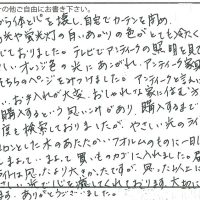 の他ご自由にお書き下さい。
から体と心を壊し、自宅でカーテンを閉め、
光や蛍光灯の白い、あかりの色がとても冷たく
じておりました。テレビでアンティークの照明を見て
いオレンジ色の光にあこがれ、アンティーク家具
そちらのページをみつけました。アンティークと言えば
い、お手入れが大変、おしゃれな家に住む方
購入するという思いこみがあり、購入するまで
度と検索しておりましたが、やさしい光のライ
ロンとした水のあたたかいフォルムのものに一目
しまして、まよって買いものカゴに入れました。
ライトは思ったより大きかったですが、思った以上に
さしい光で心を癒してくれております。大切に
ます。ありがとうございました。